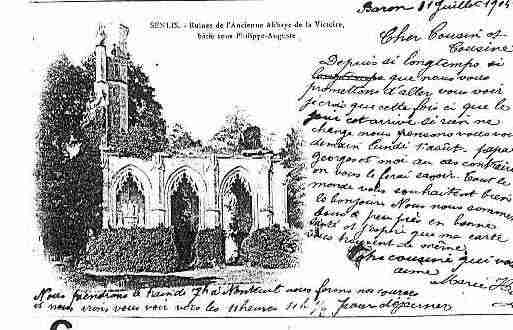 Baron 11 Juillet 1904
SENLIS. - Ruines de l'Ancienne Abbaye de la Victoire,
bâtie sous Philippe-Auguste
Cher Cousin et
Cousine
Depuis si longtemps
que nous vous
promettons d'aller vous voir
je crois que cette fois ci que le
jour est arrivé si rien ne
change nous pensons vous voir
demain lundi
et moi au cas contraire
on vous le fera savoir. Tout le
monde vous souhaite bien
le bonjour Nous nous sommes
tous à peu près en bonne
santé et j'espère que ma carte
vous de même
Votre cousine qui vous
aime
Marie
Nous prendrons le train de 7h à Nanteuil nous ferons nos courses
et nous irons vous voir vers les 11 heures 11h ½ pour déjeuner